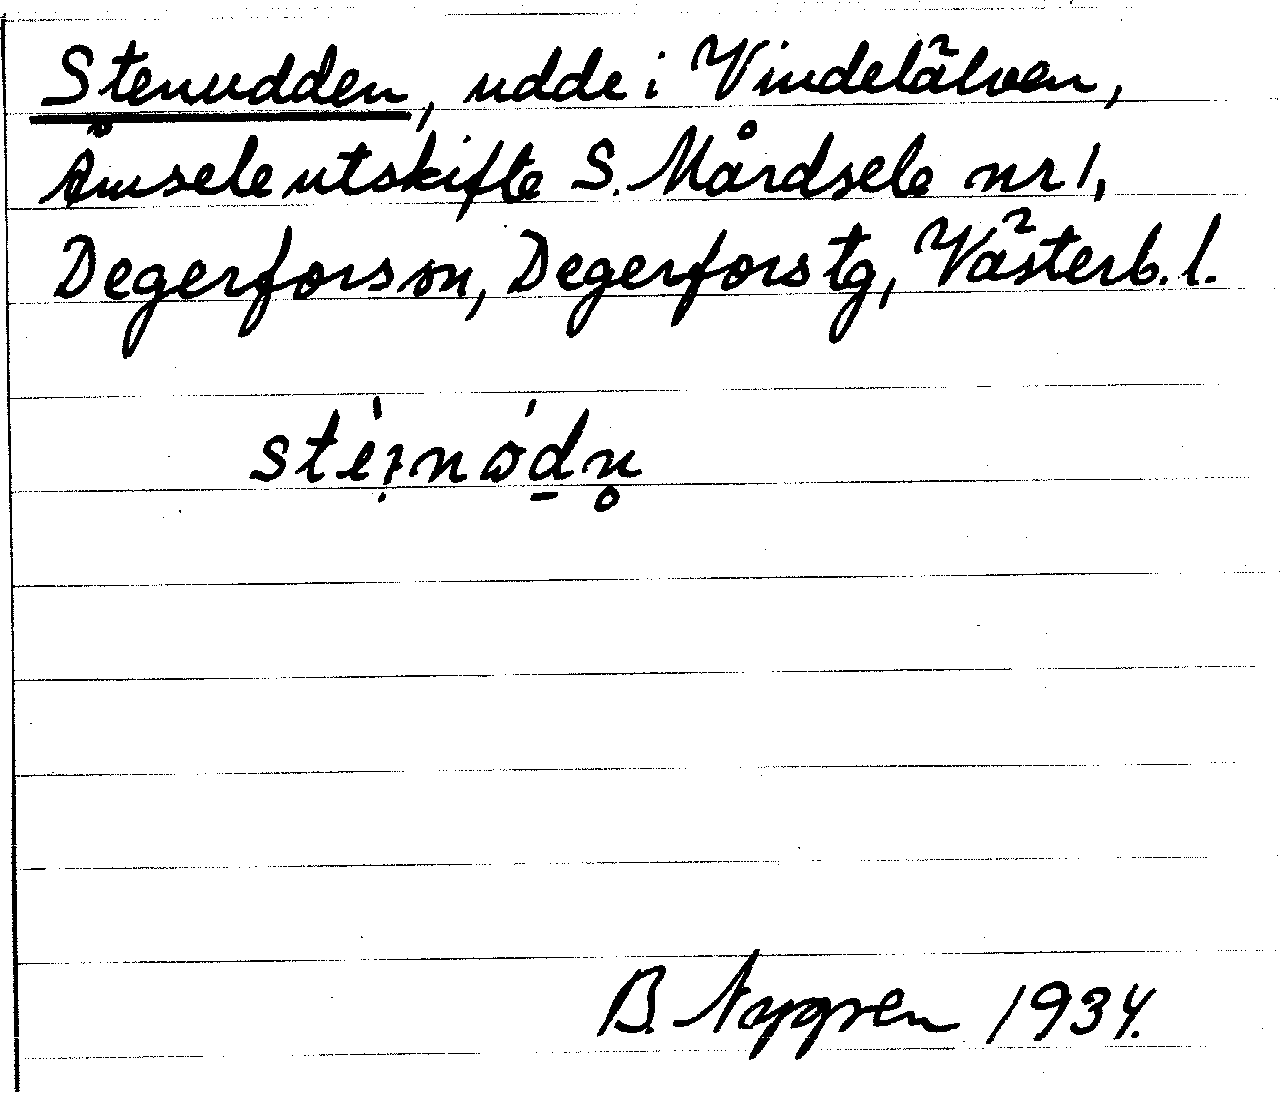 Stenudden, udde i Vindelälven,
Åmsele utskifte S. Mårdsele nr 1,
Degerfors sn, Degerfors tg, Västerb. l.
B. Nygren 1934.